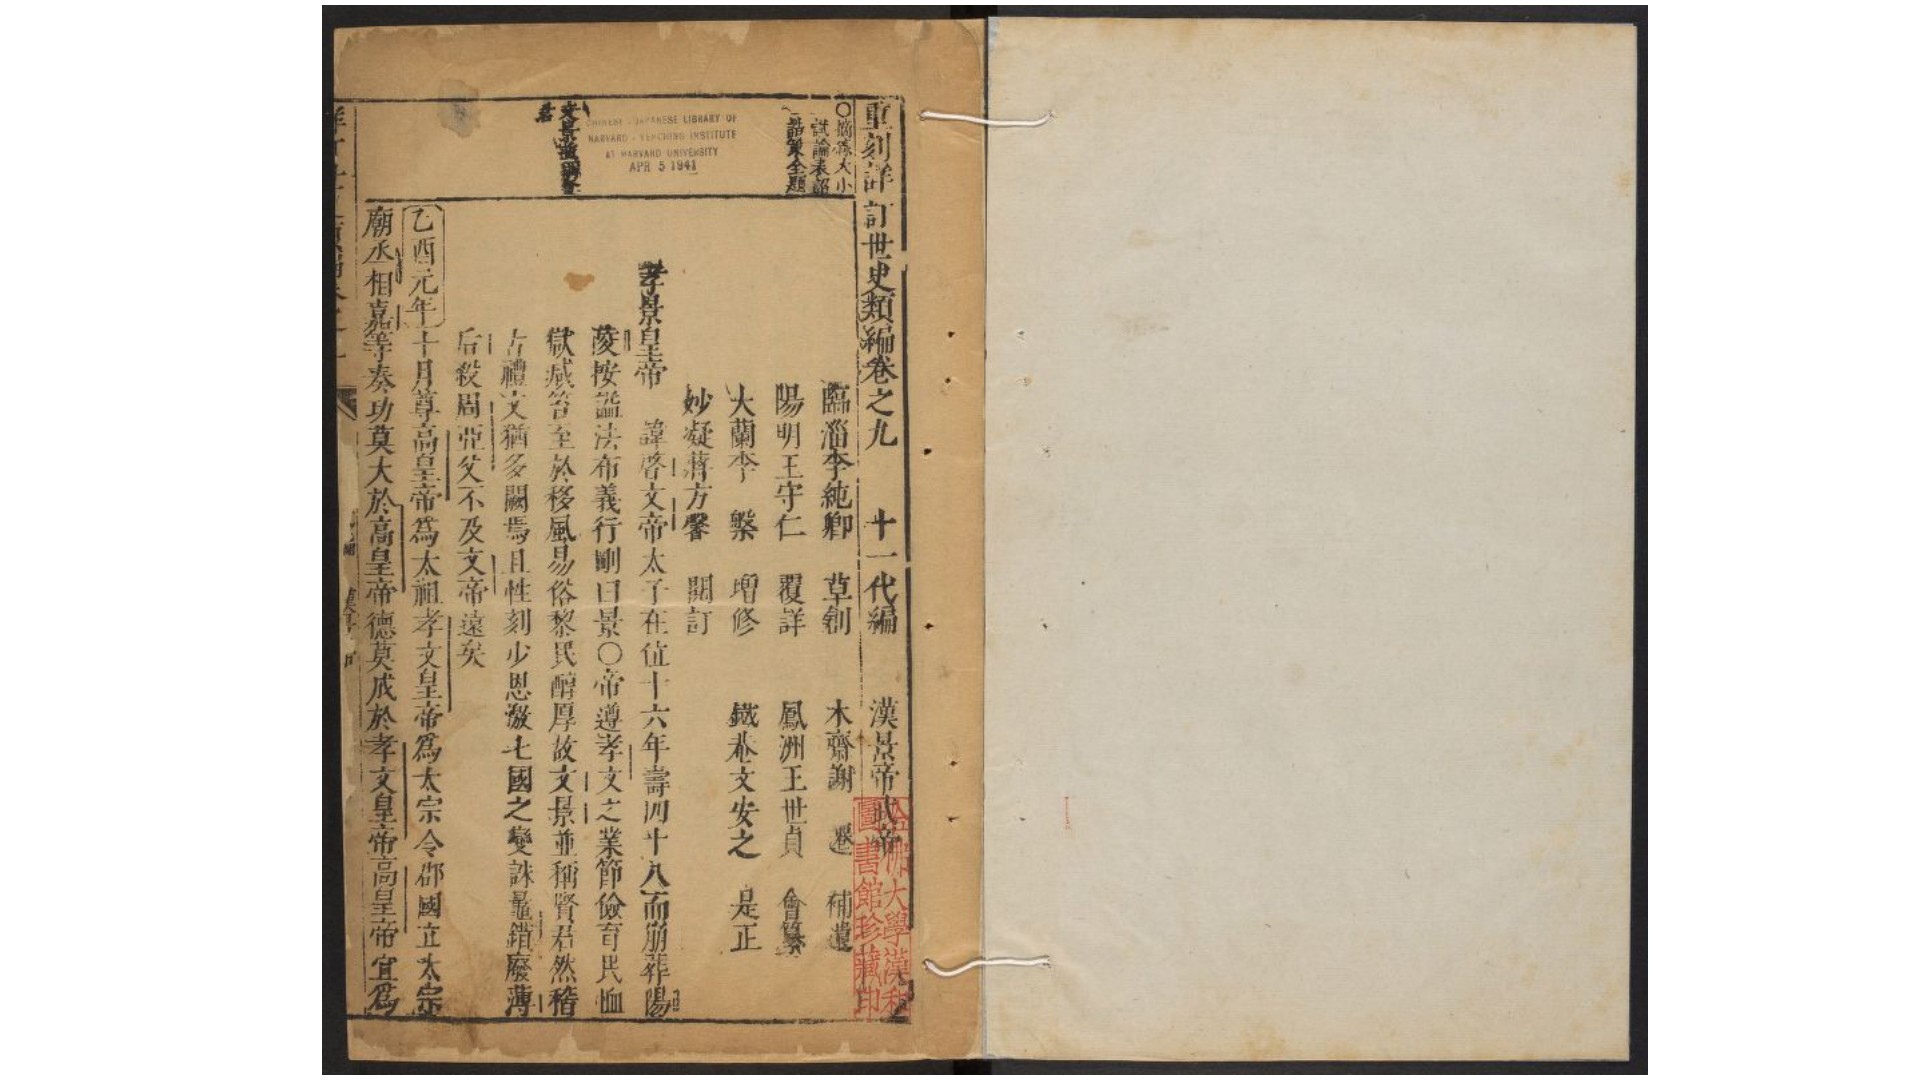 重刻詳訂世史類編卷之九　十一代編　漢景帝武帝
○摘錄大小
試論表詔
誥策全題
臨淄李純卿　草創　木齋謝　遷　補遺
陽明王守仁　覆詳　鳳洲王世貞　會纂
大蘭李　槃　增修　鐵菴文安之　是正
妙凝蔣方馨　閱訂
CHINESE - JAPANESE LIBRARY OF
HARVARD - YENCHING INSTITUTE
AT HARVARD UNIVERSITY
APR 5 1941
孝景皇帝　諱啓文帝太子在位十六年壽四十八而崩葬陽
陵按諡法布義行剛曰景○帝遵孝文之業節儉育民恤
獄減笞至於移風易俗黎民醇厚故文景並稱賢君然稽
古禮文猶多闕焉且性刻少恩激七國之變誅鼂錯廢薄
后殺周亞父不及文帝遠矣
文景並稱賢
君
乙酉元年十月尊高皇帝爲太祖孝文皇帝爲太宗令郡國立太宗
廟丞相嘉等奏功莫大於高皇帝德莫盛於孝文皇帝高皇帝宜爲
哈佛大學漢和
圖書館珍藏印